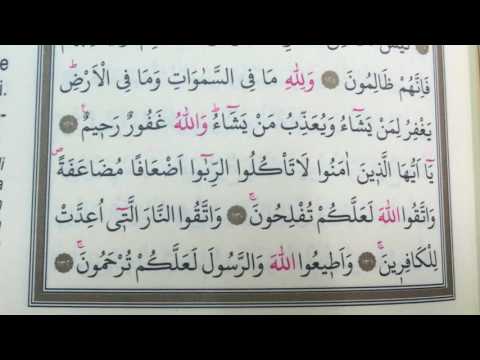 فَاِنَّهُمْ ظَالِمُونَ وَلِلّٰهِ مَا فِى السَّمٰوَاتِ وَمَا فِى الْاَرْضِ
يَغْفِرُ لِمَنْ يَشَٓاءُ وَيُعَذِّبُ مَنْ يَشَٓاءُ وَاللّٰهُ غَفُورٌ رَحٖيمٌ
يَٓا اَيُّهَا الَّذٖينَ اٰمَنُوا لَا تَاْكُلُوا الرِّبٰٓوا اَضْعَافًا مُضَاعَفَةً
وَاتَّقُوا اللّٰهَ لَعَلَّكُمْ تُفْلِحُونَ وَاتَّقُوا النَّارَ الَّتٖٓى اُعِدَّتْ
لِلْكَافِرٖينَ وَاَطٖيعُوا اللّٰهَ وَالرَّسُولَ لَعَلَّكُمْ تُرْحَمُونَ